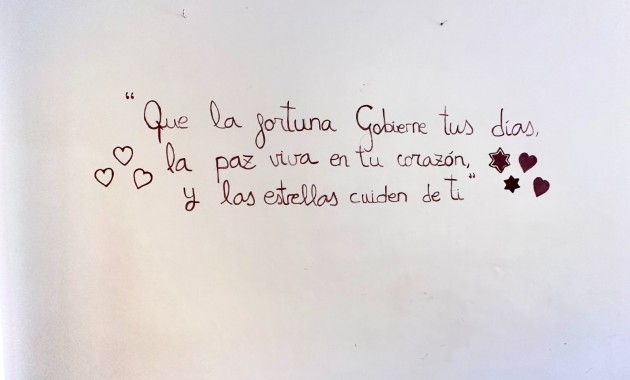 "Que la fortuna Gobierne tus días,
la paz viva en tu corazón,
y las estrellas cuiden de ti"